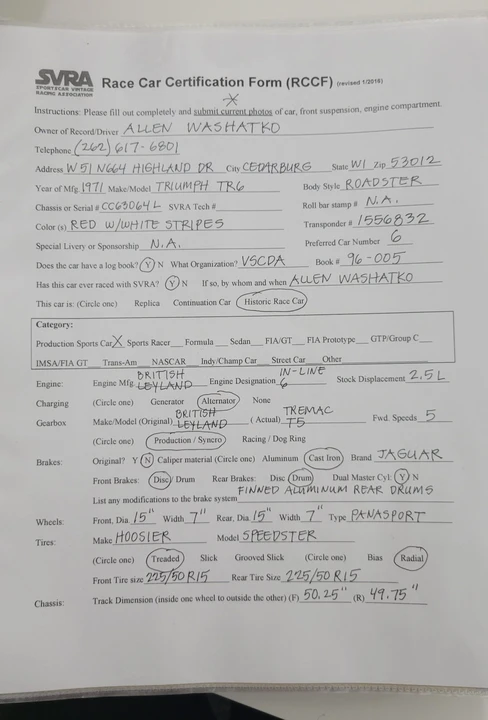 SVRA
SPORTSCAR VINTAGE
RACING ASSOCIATION
Race Car Certification Form (RCCF) (revised 1/2018)
Instructions: Please fill out completely and submit current photos of car, front suspension, engine compartment.
Owner of Record/Driver ALLEN WASHATKO
Telephone (262) 617-6801
Address W51 N664 HIGHLAND DR City CEDARBURG State WI Zip 53012
Year of Mfg. 1971 Make/Model TRIUMPH TR6 Body Style ROADSTER
Chassis or Serial # CC63064L SVRA Tech # Roll bar stamp # N.A.
Color (s) RED W/WHITE STRIPES Transponder # 1556832
Special Livery or Sponsorship N.A. Preferred Car Number 6
Does the car have a log book? Y N What Organization? VSCDA Book # 96-005
Has this car ever raced with SVRA? Y N If so, by whom and when ALLEN WASHATKO
This car is: (Circle one) Replica Continuation Car Historic Race Car
Category:
Production Sports Car X Sports Racer Formula Sedan FIA/GT FIA Prototype GTP/Group C
IMSA/FIA GT Trans-Am NASCAR Indy/Champ Car Street Car Other
Engine: Engine Mfg BRITISH LEYLAND Engine Designation IN-LINE 6 Stock Displacement 2.5 L
Charging (Circle one) Generator Alternator None
Gearbox Make/Model (Original) BRITISH LEYLAND (Actual) TREMAC T5 Fwd. Speeds 5
(Circle one) Production / Syncro Racing / Dog Ring
Brakes: Original? Y N Caliper material (Circle one) Aluminum Cast Iron Brand JAGUAR
Front Brakes: Disc / Drum Rear Brakes: Disc Drum Dual Master Cyl: Y N
List any modifications to the brake system FINNED ALUMINUM REAR DRUMS
Wheels: Front, Dia. 15" Width 7" Rear, Dia 15" Width 7" Type PANASPORT
Tires: Make HOOSIER Model SPEEDSTER
(Circle one) Treaded Slick Grooved Slick (Circle one) Bias Radial
Front Tire size 225/50 R15 Rear Tire Size 225/50 R15
Chassis: Track Dimension (inside one wheel to outside the other) (F) 50.25" (R) 49.75"